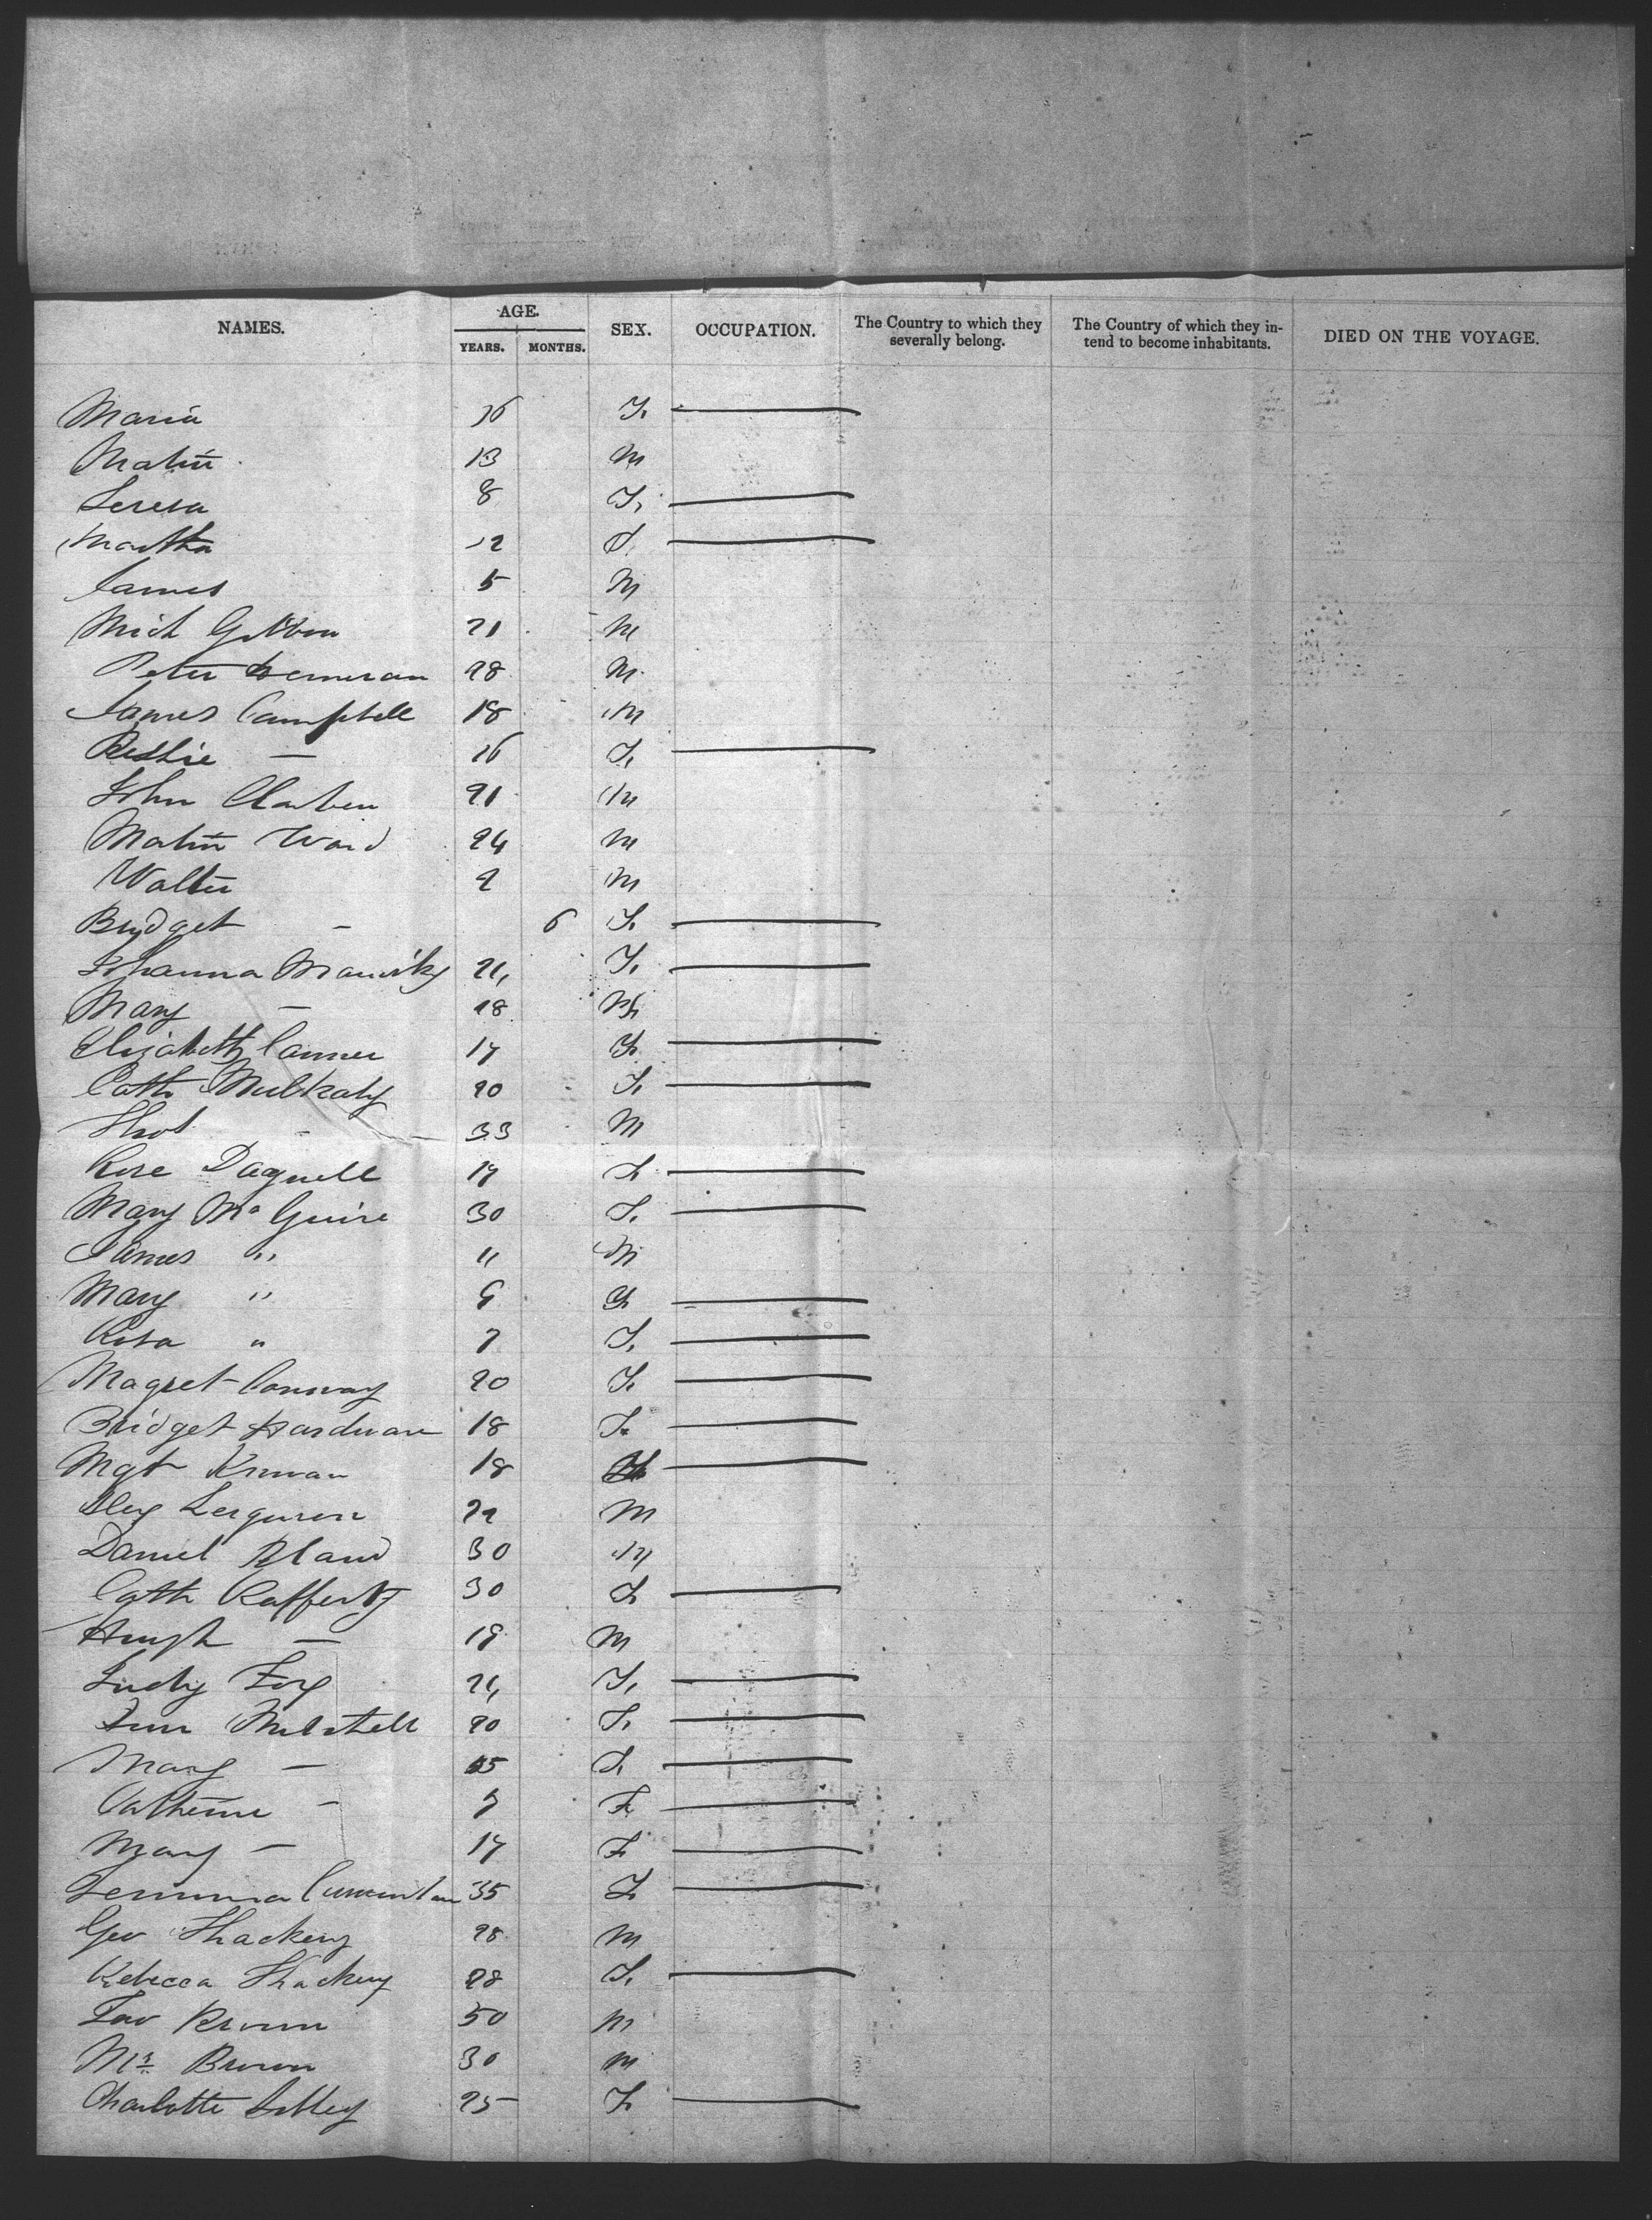 NAMES. AGE. YEARS. MONTHS. SEX. OCCUPATION. The Country to which they severally belong. The Country of which they intend to become inhabitants. DIED ON THE VOYAGE.
Maria 16 F. —
Matin 13 M
Teresa 8 F. —
Martha 12 F. —
James 5 M
Mich Gibbon 21 M
Peter 28 M
James Campbell 18 M
16 F. —
John 21 M
Matin Ward 24 M
Walter 2 M
Bridget - 6 F. —
Johanna 24 F. —
Mary - 18
Elizabeth Conner 17 F. —
Cath 20 F. —
Thos - 33 M
Rose Dagnell 17 F —
Mary Mc Guire 30 F. —
James " 11 M
Mary " 9 F —
Rosa " 7 F. —
Magret Conway 20 F. —
Bridget Hardman 18 F. —
Mgt Kirwan 18 F —
Alex Ferguson 22 M
Daniel Bland 30 M
Cath Rafferty 30 F —
Hugh — 18 M
Judy Fox 24 F. —
Ann Mitchell 20 F. —
Mary — 15 F. —
Catherine - 7 F. —
Mary - 17 F. —
35 F —
Geo Thackery 28 M
Rebecca Thackery 28 F. —
Brown 50 M
Mrs Brown 30 M
Charlotte 25 F. —